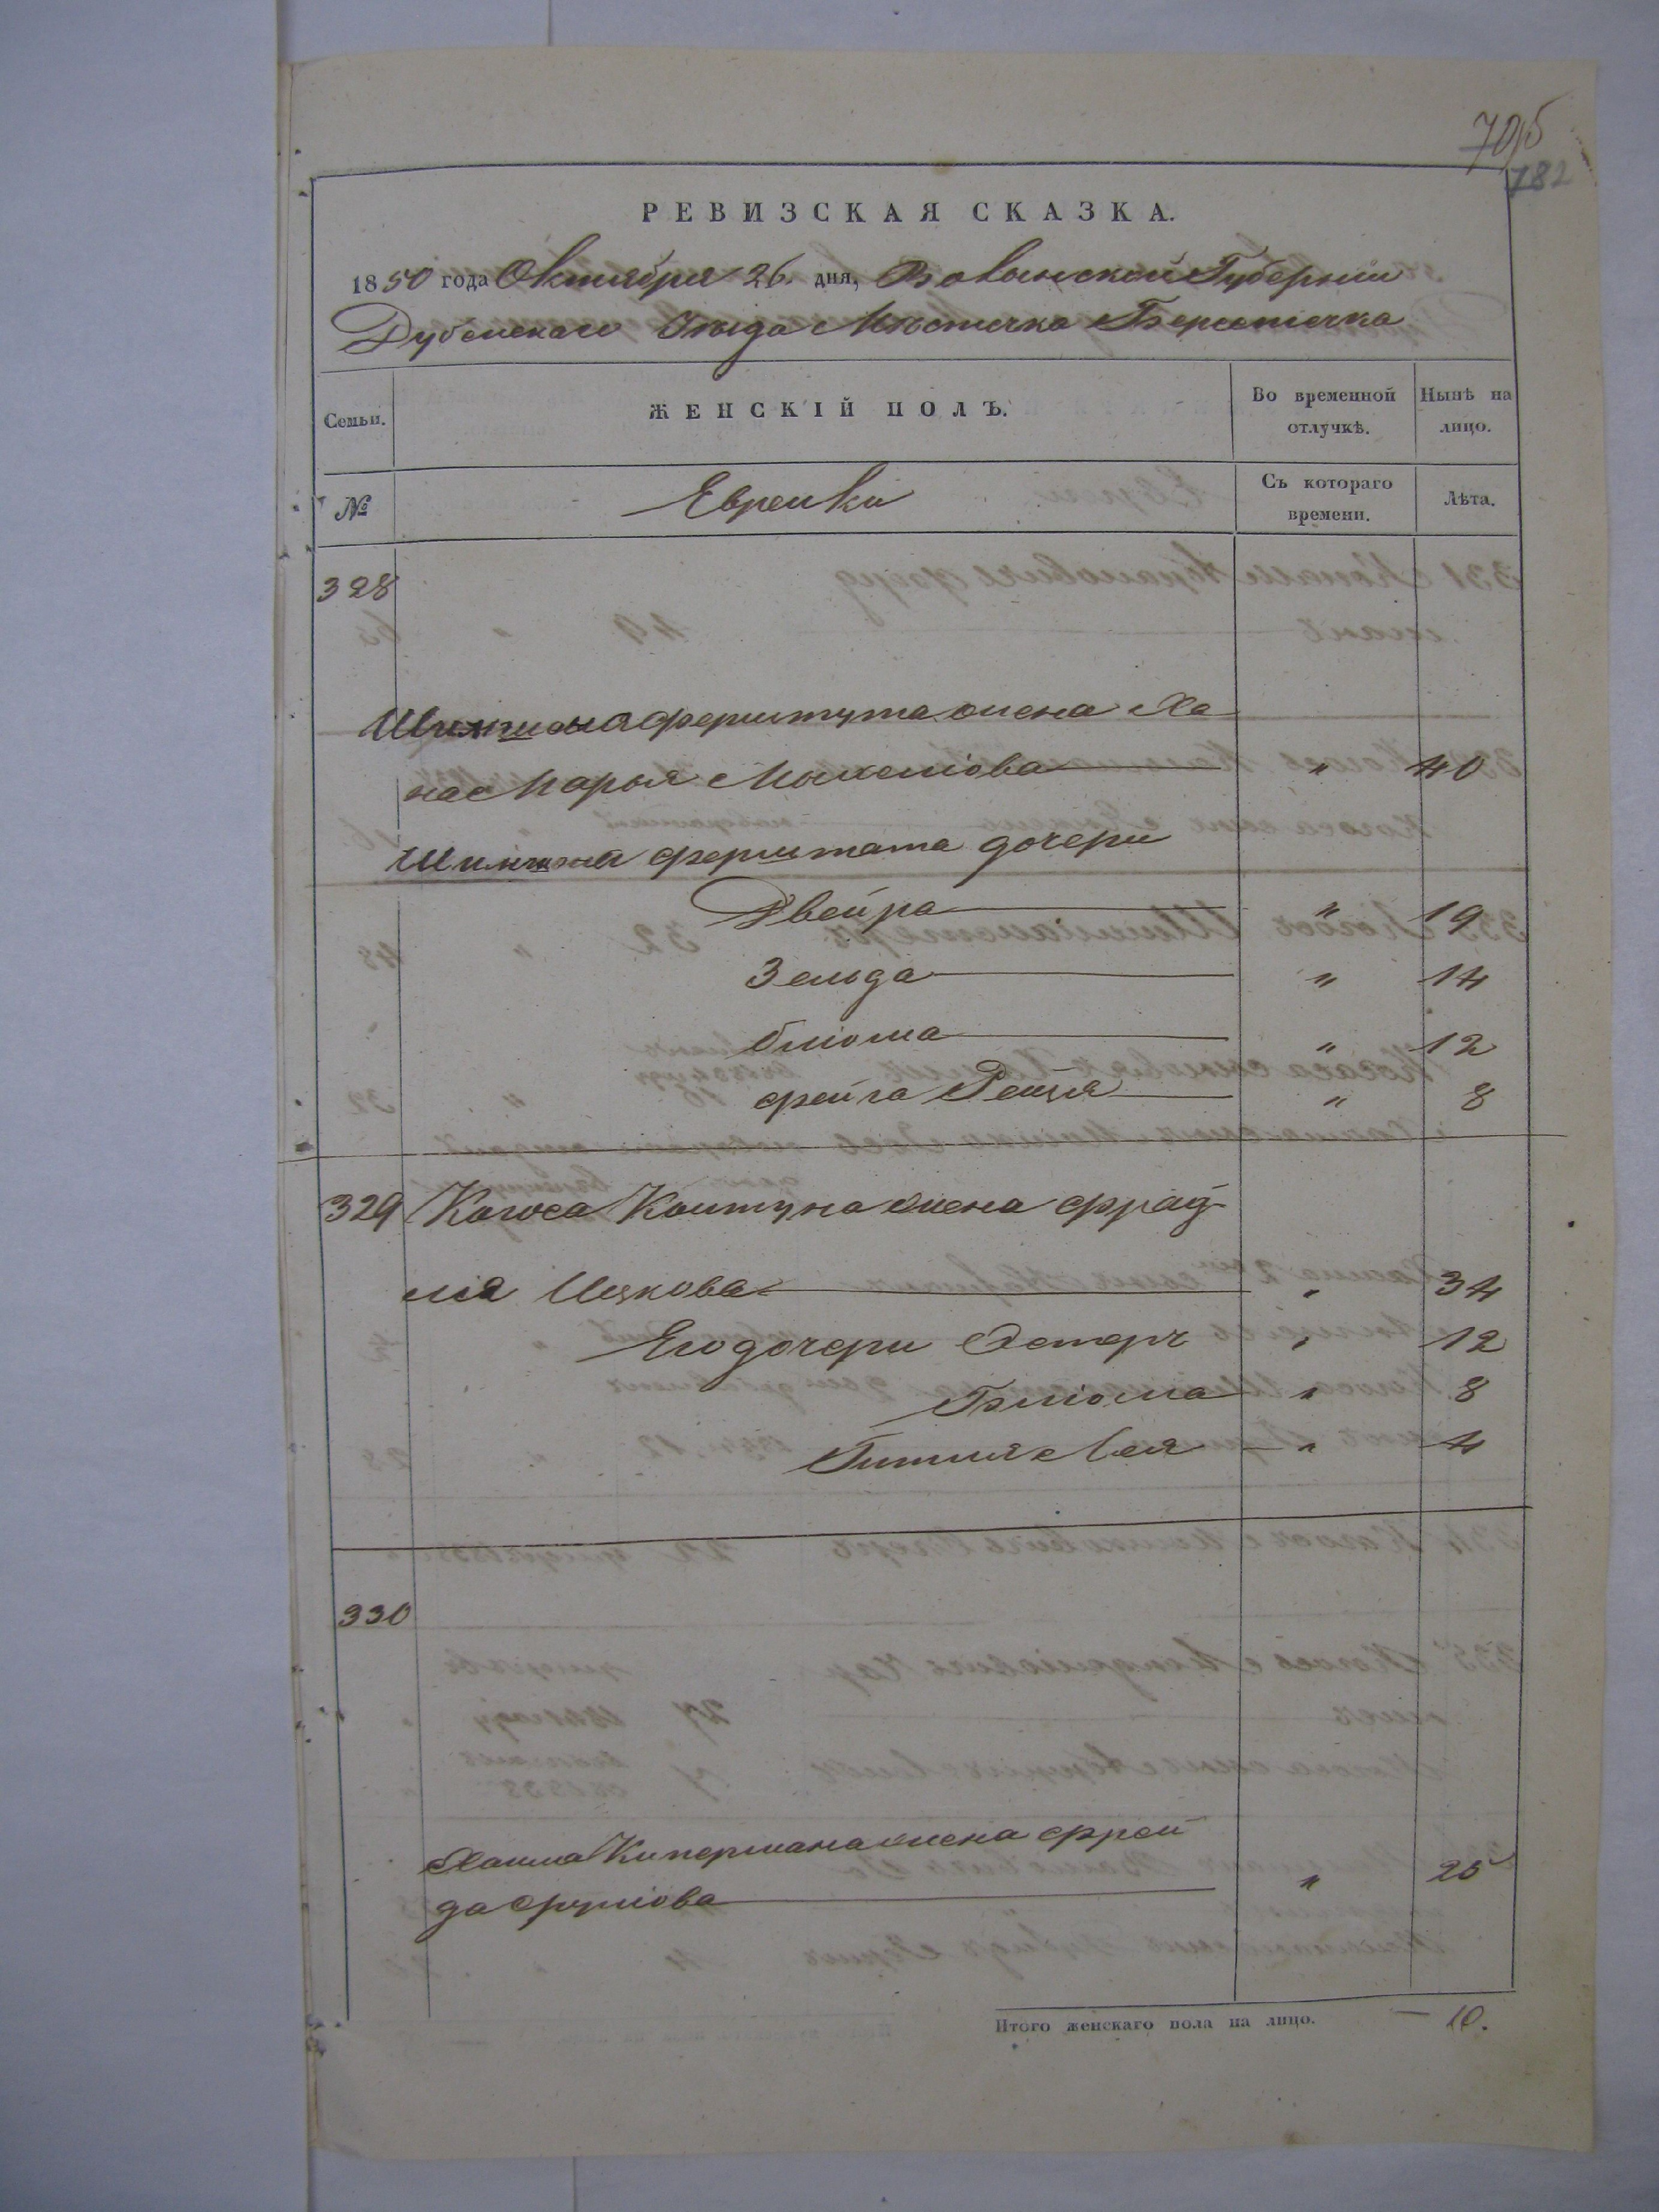 705
782
РЕВИЗСКАЯ СКАЗКА.
1850 года Октября 26. дня, Волынской Губернии
Дубенскаго Уѣзда Мѣстечка Берестечка
Семьи. ЖЕНСКІЙ ПОЛЪ. Во временной отлучкѣ. Нынѣ на лицо.
№ Еврейки Съ котораго времени. Лѣта.
328
Шимшона Ферштута жена Ха
на Марья Мошкова " 40
Шимшона дочери
Двейра " 19
Зельда " 14
Блюма " 12
Фейга Рейзя " 8
329 Колтуна жена Фрад
ля Ицкова " 34
Его дочери Эстеръ " 12
Блюма " 8
Гитля Лея " 4
330
Хаима Кипермана жена Фрей
да Срулiова " 25
Итого женскаго пола на лицо. — 10.